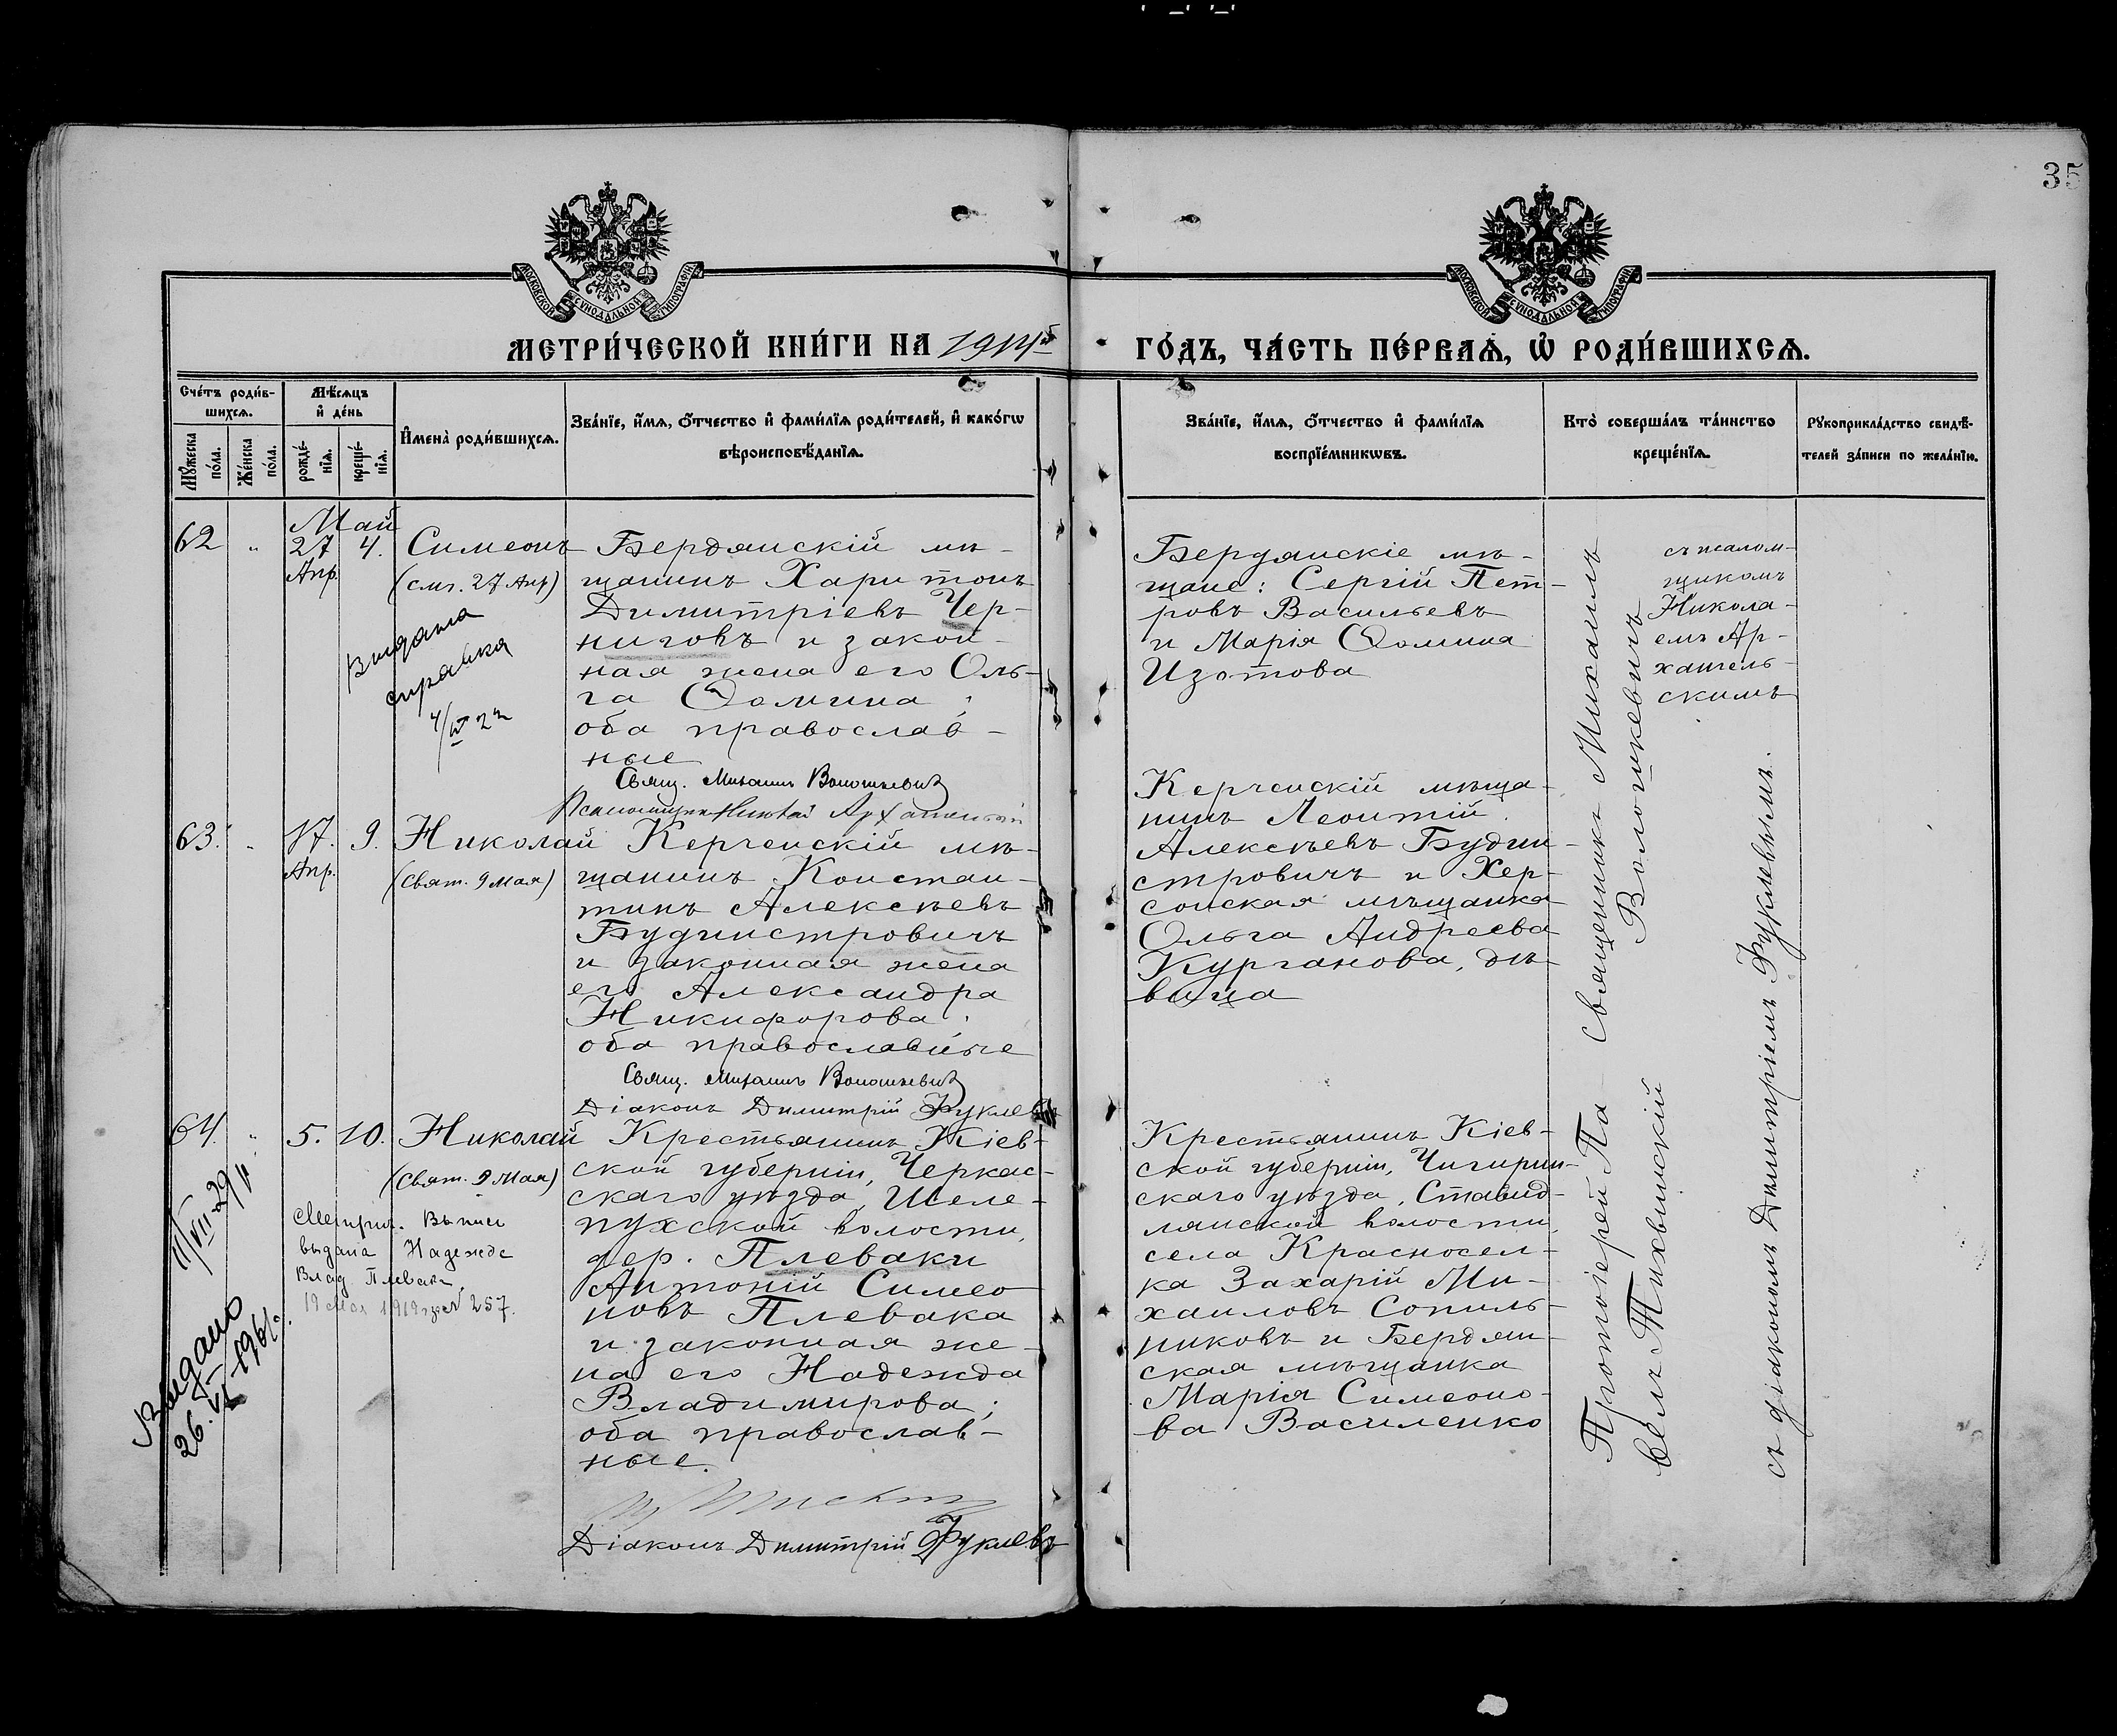 35
МОСКОВСКОЙ СѴНОДАЛЬНОЙ ТИПОГРАФІИ
МОСКОВСКОЙ СѴНОДАЛЬНОЙ ТИПОГРАФІИ
МЕТРИ́ЧЕСКОЙ КНИ́ГИ НА 1914й ГО́ДЪ, ЧА́СТЬ ПЕ́РВАѦ, Ѡ҆ РОДИ́ВШИХСѦ.
Сче́тъ роди́в-
шихсѧ.
Мꙋ́жеска по́ла.
Же́нска по́ла.
Мѣ́сѧцъ
и҆ де́нь
рожде́-
нїѧ.
креще́-
нїѧ.
И҆мена̀ роди́вшихсѧ.
Зва́нїе, и҆́мѧ, ѻ҆́тчество и҆ фами́лїѧ роди́телей, и҆ како́гѡ
вѣроисповѣ́данїѧ.
Зва́нїе, и҆́мѧ, ѻ҆́тчество и҆ фами́лїѧ
воспрїе́мникѡвъ.
Кто̀ соверша́лъ та́инство
креще́нїѧ.
Рꙋкоприкла́дство свидѣ́-
телей за́писи по жела́нїю.
Май
62 " 27 4. Симеонъ
Апр. (смч. 27 Апр)
Выдана
справка
4/IV 22
Бердянскій мѣ-
щанинъ Харитонъ
Димитріевъ Чер-
ниговъ и закон-
ная жена его Оль-
га Ѳомина;
оба православ-
ные
Свящ. Михаилъ Волошкевичъ
Псаломщик Николай Архангельскій
Бердянскіе мѣ-
щане: Сергій Пет-
ровъ Васильевъ
и Марія Ѳомина
Изотова
Священникъ Михаилъ
Волошкевичъ
съ псалом-
щикомъ
Никола-
емъ Ар-
хангель-
скимъ
63. " 17. 9. Николай
Апр. (Свят. 9 Мая)
Керченскій мѣ-
щанинъ Констан-
тинъ Алексѣевъ
Будчистровичъ
и законная жена
его Александра
Никифорова;
оба православные
Свящ. Михаилъ Волошкевичъ
Діаконъ Димитрій Фуклевъ
Керченскій мѣща-
нинъ Леонтій
Алексѣевъ Будчи-
стровичъ и Хер-
сонская мѣщанка
Ольга Андреева
Курганова, дѣ-
вица
64. " 5. 10. Николай
(Свят. 9 Мая)
11/VII 29
Метрич. Выпись
выдана Надежде
Влад. Плевака
19 Мая 1919 № 257.
Выдано
26.VI-1961г.
Крестьянинъ Кіев-
ской губерніи, Черкас-
скаго уѣзда, Шеле-
пухской волости,
дер. Плеваки
Антоній Симео-
новъ Плевака
и законная же-
на его Надежда
Владимирова;
оба православ-
ные.
Діаконъ Димитрій Фуклевъ
Крестьянинъ Кіев-
ской губерніи, Чигирин-
скаго уѣзда, Ставид-
лянской волости,
села Красносел-
ка Захарій Ми-
хаиловъ Сопиль-
никовъ и Бердян-
ская мѣщанка
Марія Симеоно-
ва Василенко
Протоіерей Па-
велъ Тихвинскій
съ діакономъ Димитріемъ Фуклевымъ.